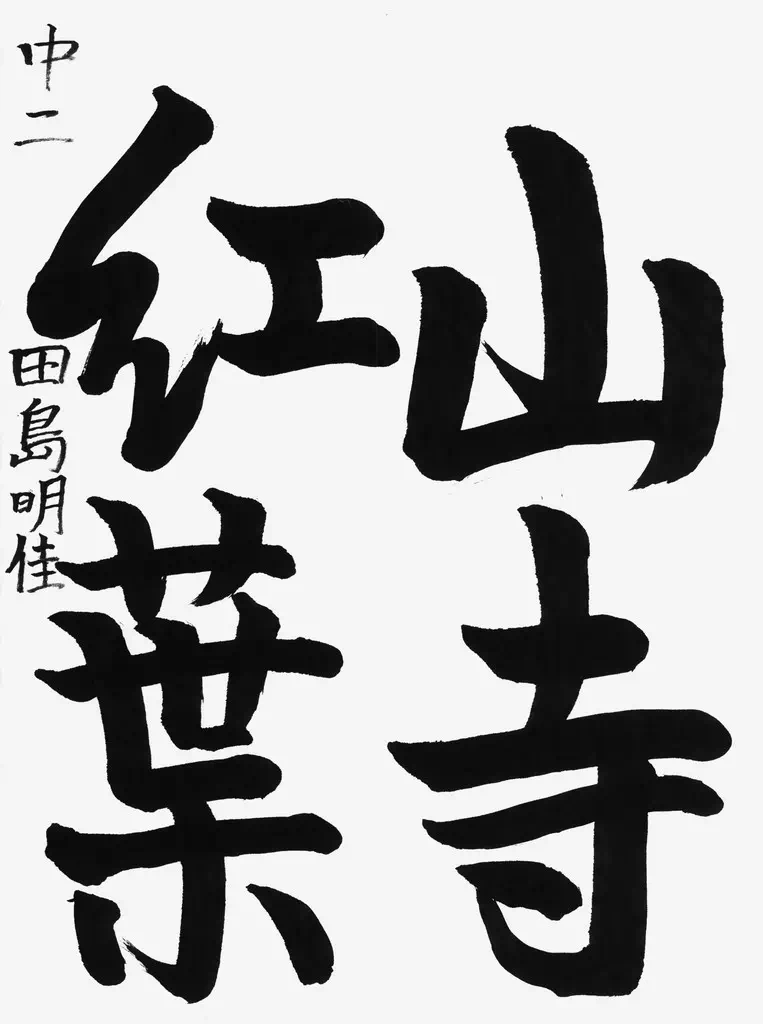 山寺
紅葉
中二
田島明佳